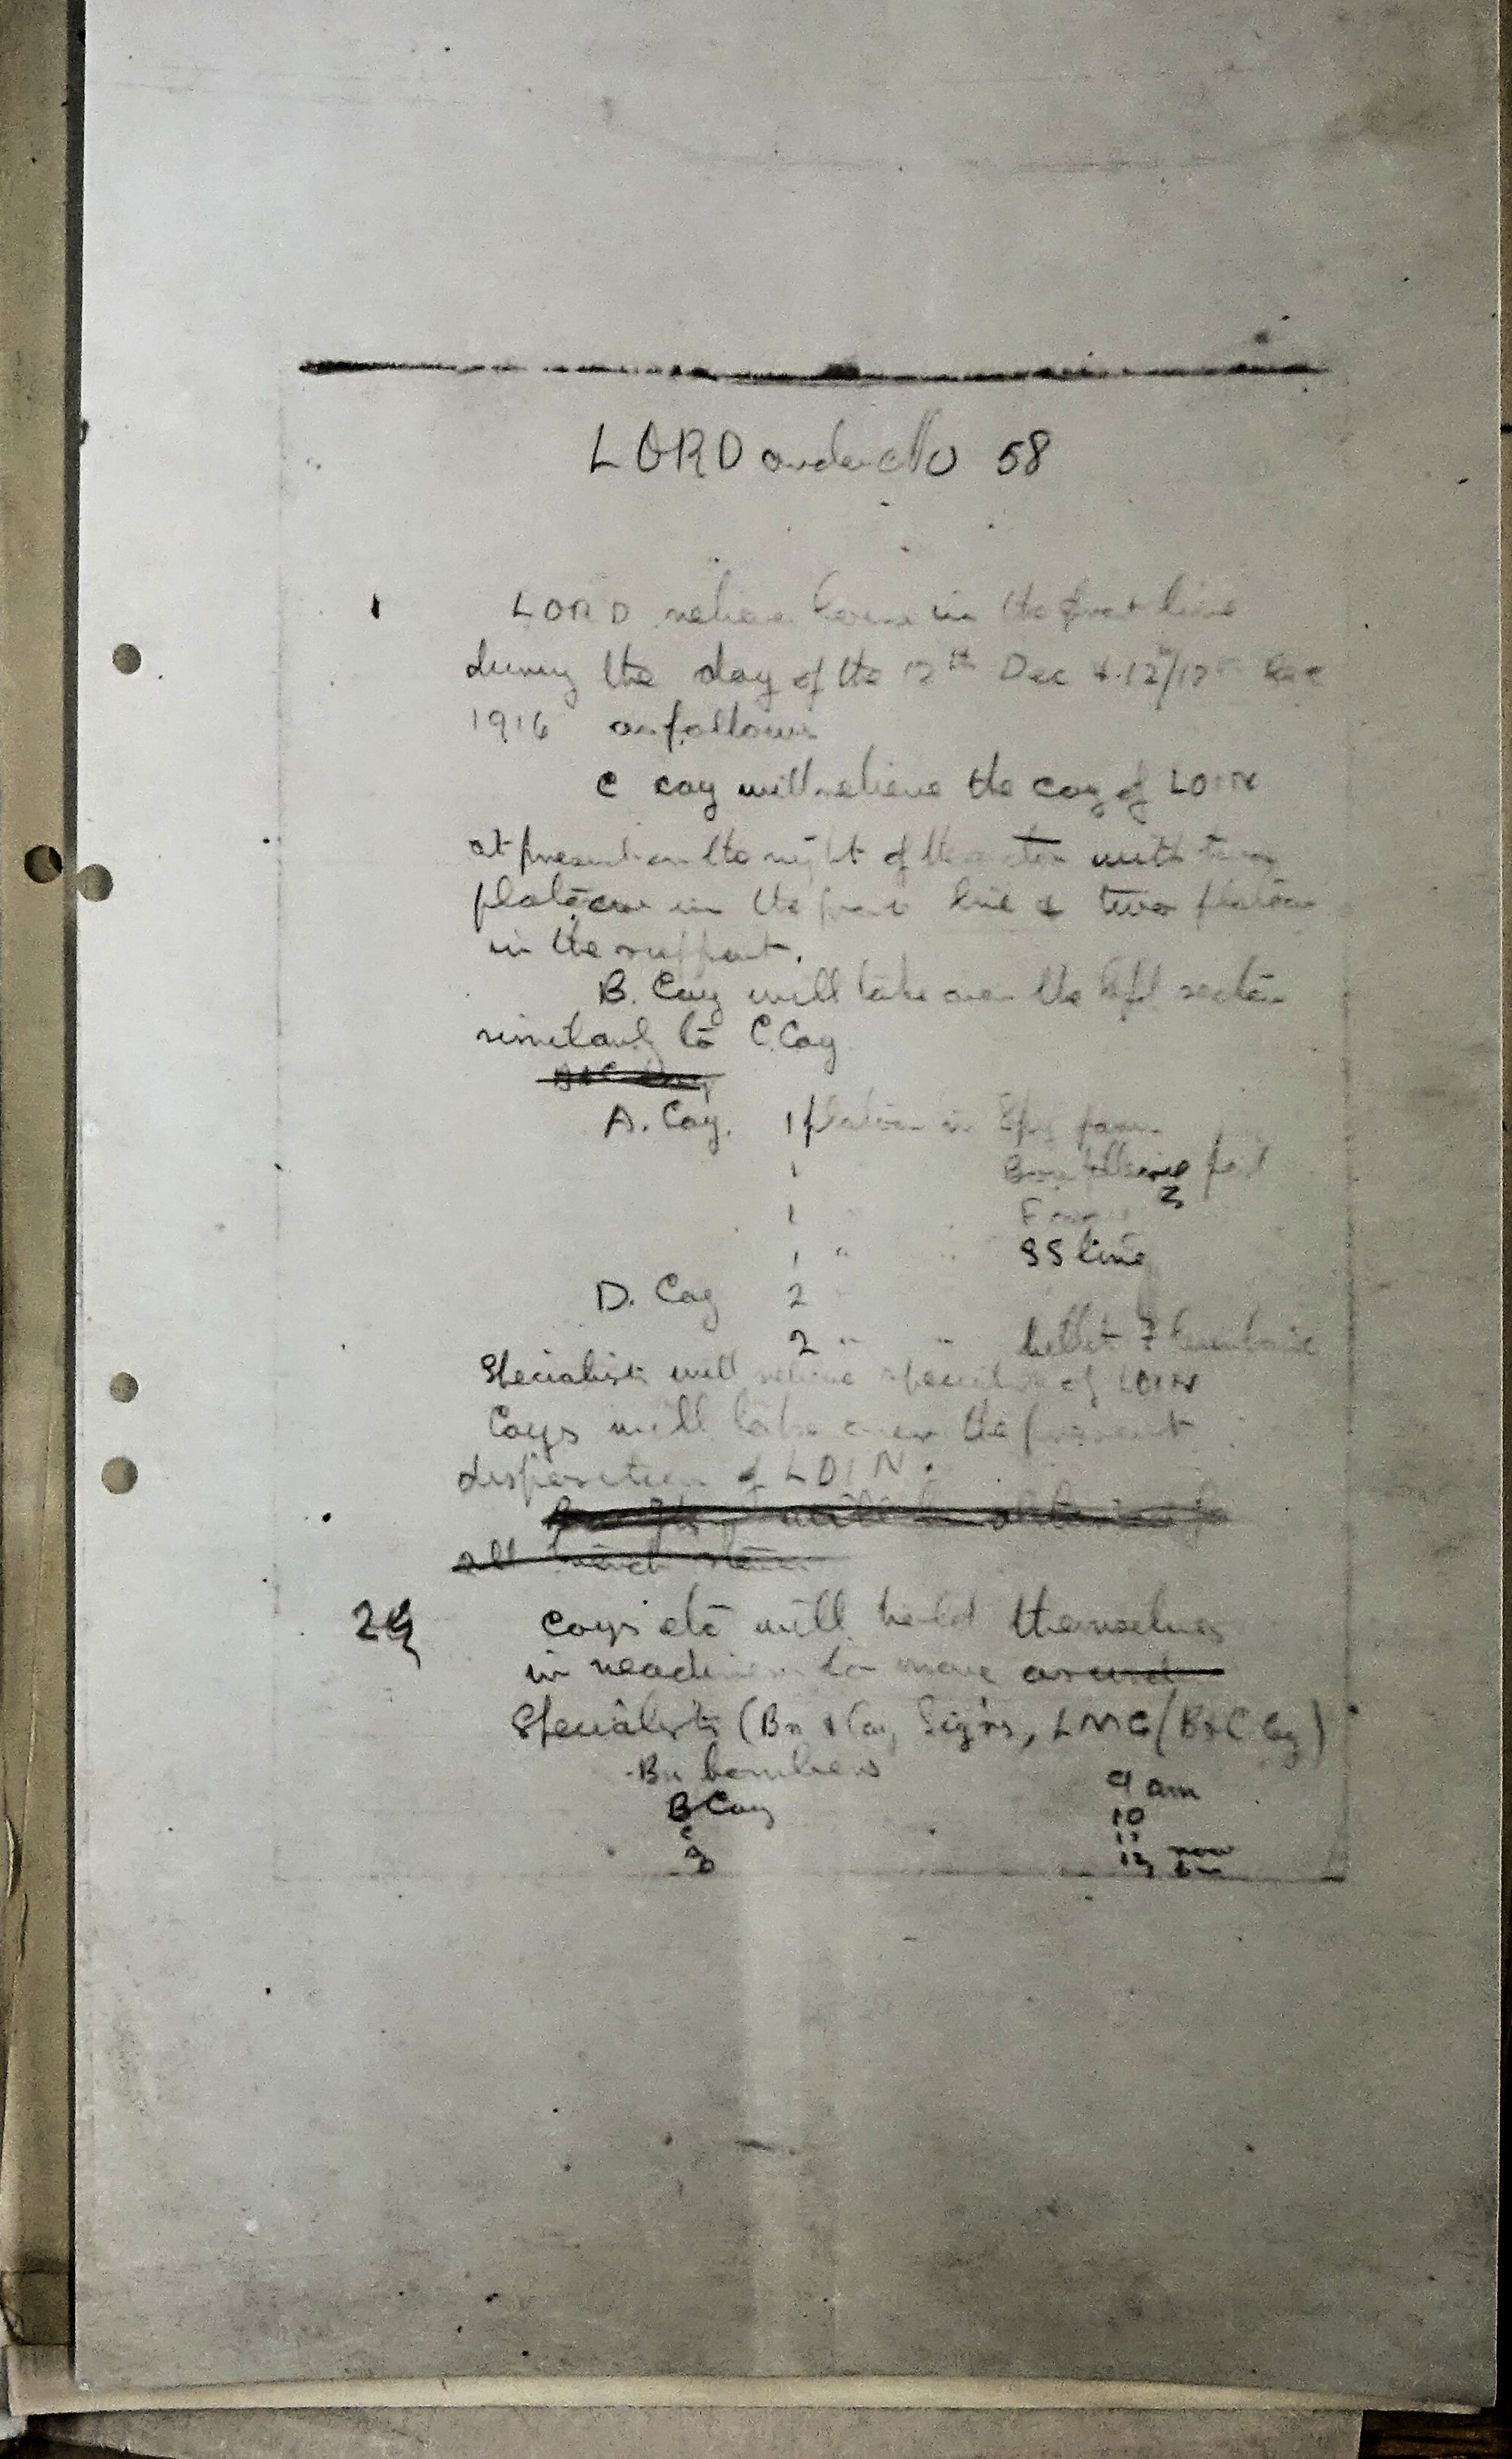 LORD order No 58
1 LORD relieve in the front line
during the day of the 12th Dec & 12/13 Dec
1916 as follows
C coy will relieve the coy of LOIN
at present on the right of the with two
platoons in the front line & two platoons
in the support.
B. Coy will take over the left sector
similarly to C. Coy
A. Coy. 1 platoon in Spy farm
1
1
1 " " SS line
D. Coy 2
2 " " billet
Specialists will relieve specialists of LOIN
Coys will take over the present
disposition of LOIN.
will be
all trench stores
2 Coys etc will hold themselves
in readiness to move as und
Specialists (Bn & Coy Sig'rs, LMG (B & C Coy)
Bn bombers 9 am
B Coy 10
C 11
D 12 noon